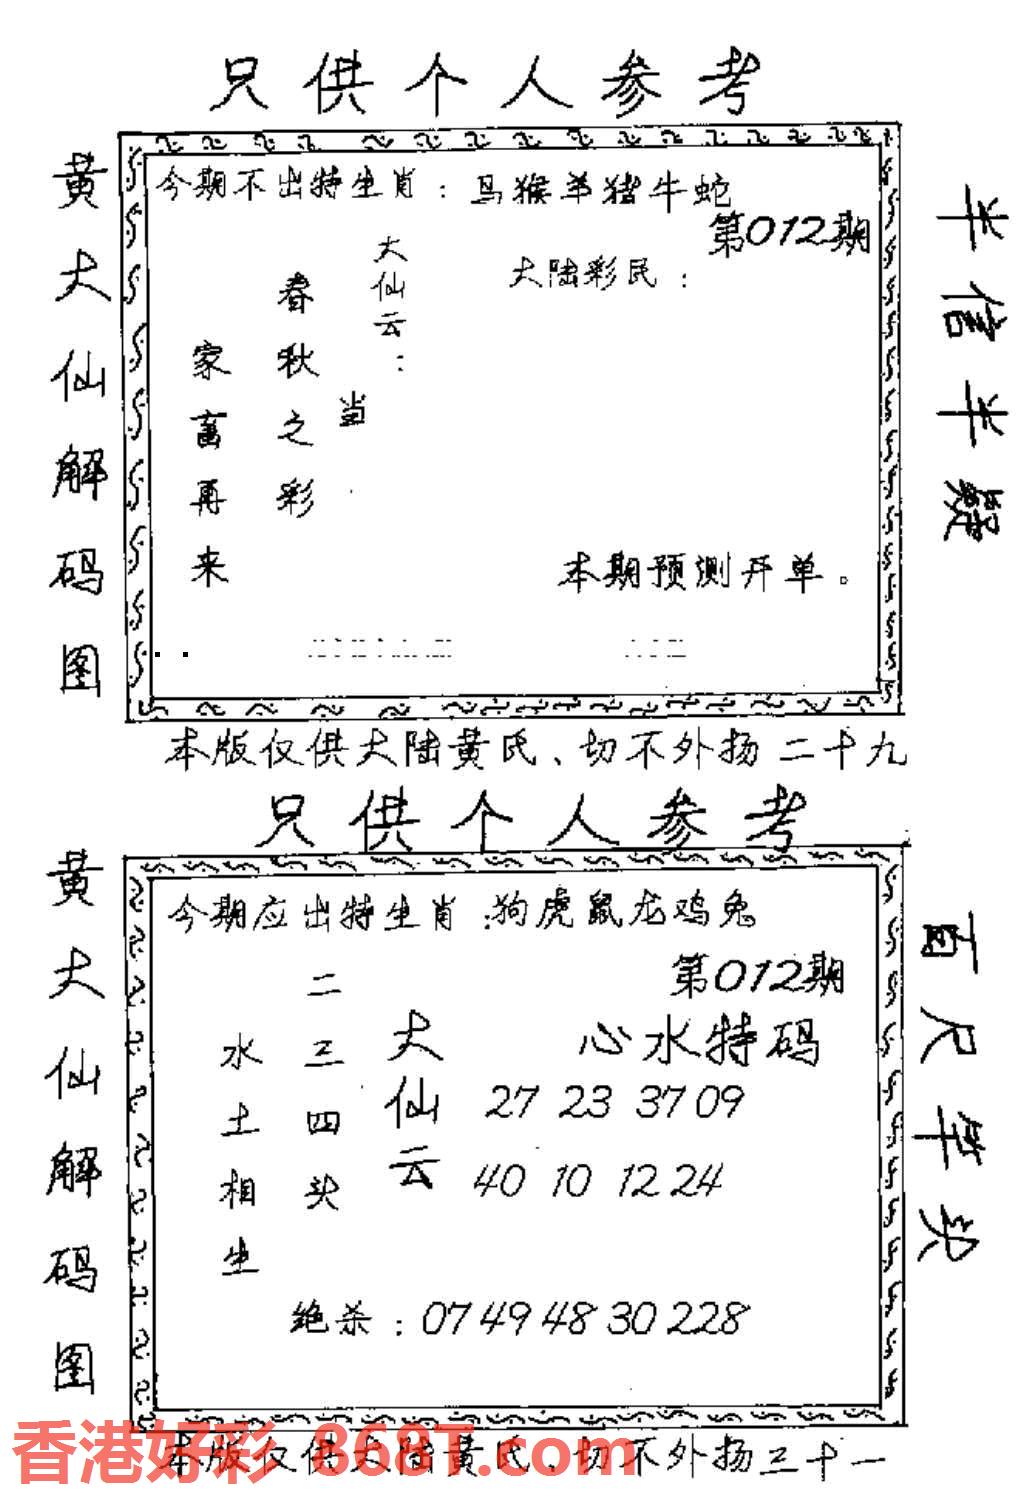 只供个人参考
黄大仙解码图
今期不出特生肖：马猴羊猪牛蛇
第012期
大陆彩民：
大仙云：
当
春秋之彩
家畜再来
本期预测开单。
半信半疑
本版仅供大陆黄氏、切不外扬二十九
只供个人参考
黄大仙解码图
今期应出特生肖：狗虎鼠龙鸡兔
第012期
心水特码
大仙云
二三四头
水土相生
27 23 37 09
40 10 12 24
绝杀：07 49 48 30 228
百尺竿头
本版仅供大陆黄氏、切不外扬三十一
香港好彩-868T.com